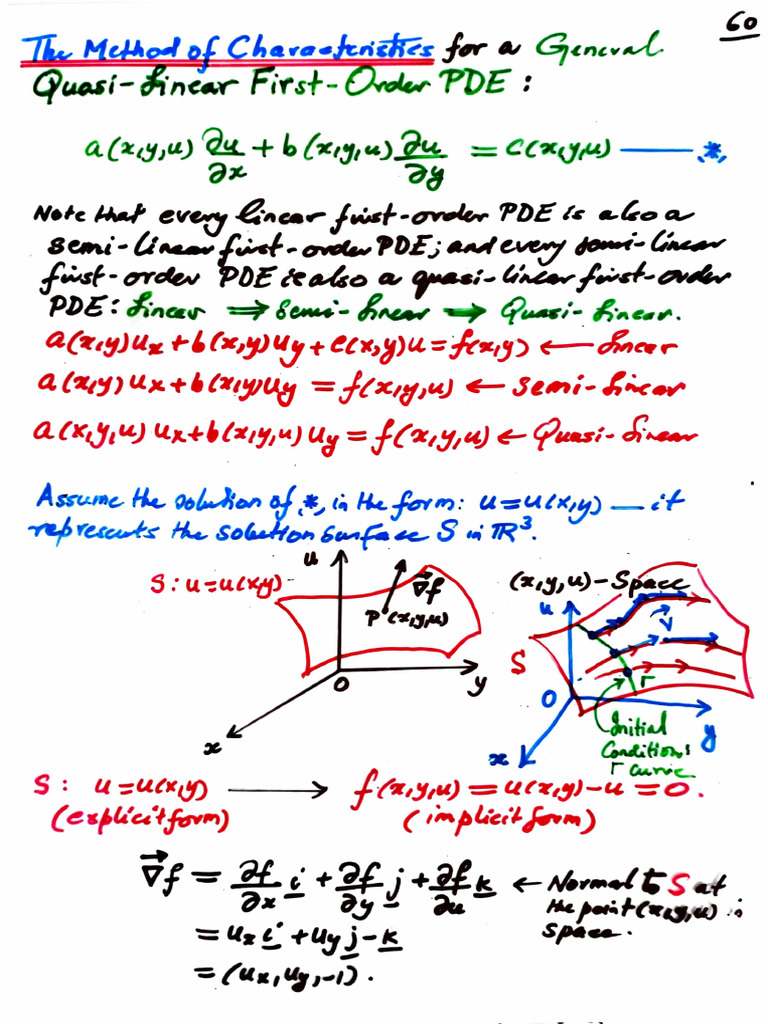 60
The Method of Characteristics for a General
Quasi-Linear First-Order PDE :
a(x,y,u) ∂u/∂x + b(x,y,u) ∂u/∂y = c(x,y,u) —— *,
Note that every linear first-order PDE is also a
semi-linear first-order PDE; and every semi-linear
first-order PDE is also a quasi-linear first-order
PDE: Linear ⟹ Semi-Linear ⟹ Quasi-Linear.
a(x,y)ux + b(x,y)uy + c(x,y)u = f(x,y) ← Linear
a(x,y)ux + b(x,y)uy = f(x,y,u) ← semi-linear
a(x,y,u) ux + b(x,y,u) uy = f(x,y,u) ← Quasi-Linear
Assume the solution of *, in the form: u = u(x,y) — it
represents the solution surface S in ℝ³.
S : u = u(x,y)
u
∇f
P (x,y,u)
O
y
x
(x,y,u) - Space
u
V
S
Γ
O
y
x
Initial
Conditions
Γ curve
S : u = u(x,y) ⟶ f(x,y,u) = u(x,y) - u = 0.
(explicit form) (implicit form)
∇f = ∂f/∂x i + ∂f/∂y j + ∂f/∂u k ← Normal to S at
the point (x,y,u) in
space.
= ux i + uy j - k
= (ux, uy, -1).